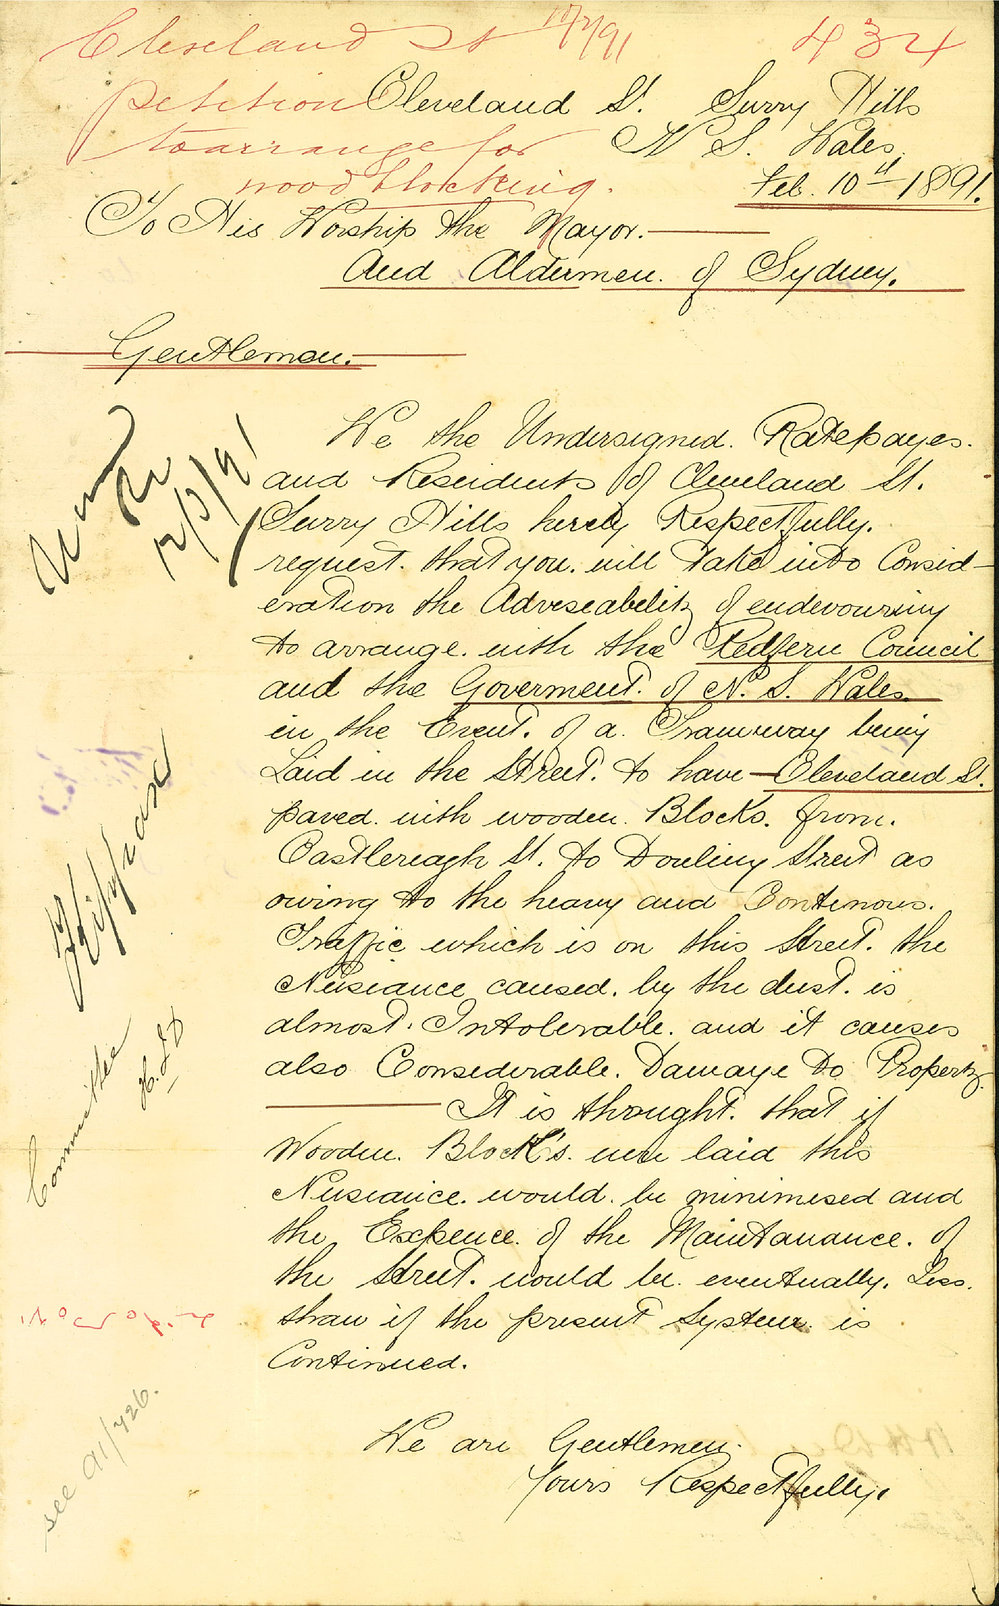 Cleveland St 10/2/91
434
Petition
to arrange for
wood blocking.
Cleveland St. Surry Hills
N. S. Wales
Feb. 10th 1891.
To His Worship the Mayor.
And Aldermen. of Sydney.
Gentlemen.
We the Undersigned. Ratepayes.
and Reseidents of Cleveland St.
Surry Hills hereby Respectfully.
request. that you. will take into Consid-
eration the Adveseabelity of endevouring
to arrange. with the Redfern Council
and the Goverment. of N. S. Wales.
in the Event. of a. Tramway being
Laid in the Street. to have Cleveland St.
paved. with wooden. Blocks. from.
Castlereagh St. to Dowling Street as
owing to the heavy and Contenous.
Traffic which is on this Street. the
Nusiance caused. by the dust. is
almost. Intolerable. and it causes
also Considerable. Damage to Property.
It is thought. that if
Wooden. Block's. were laid this
Nusiance. would. be minimesed and
the Expence. of the Maintanance. of
the Street. would be. eventually. Less.
than if the present System. is
Continued.
We are Gentlemen.
Yours Respectfully.
12/3/91
Committee
see 91/726.